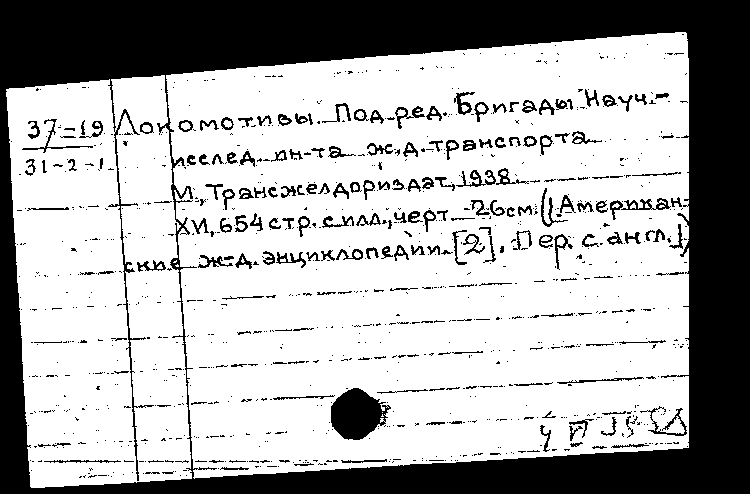 37-19 Локомотивы. Под ред. Бригады Науч.-
31-2-1 исслед. ин-та ж.д. транспорта
М., Трансжелдориздат, 1938.
XVI, 654 стр. с илл., черт. 26см. (Американ-
ские ж-д. энциклопедии. [2]. Пер. с англ.)